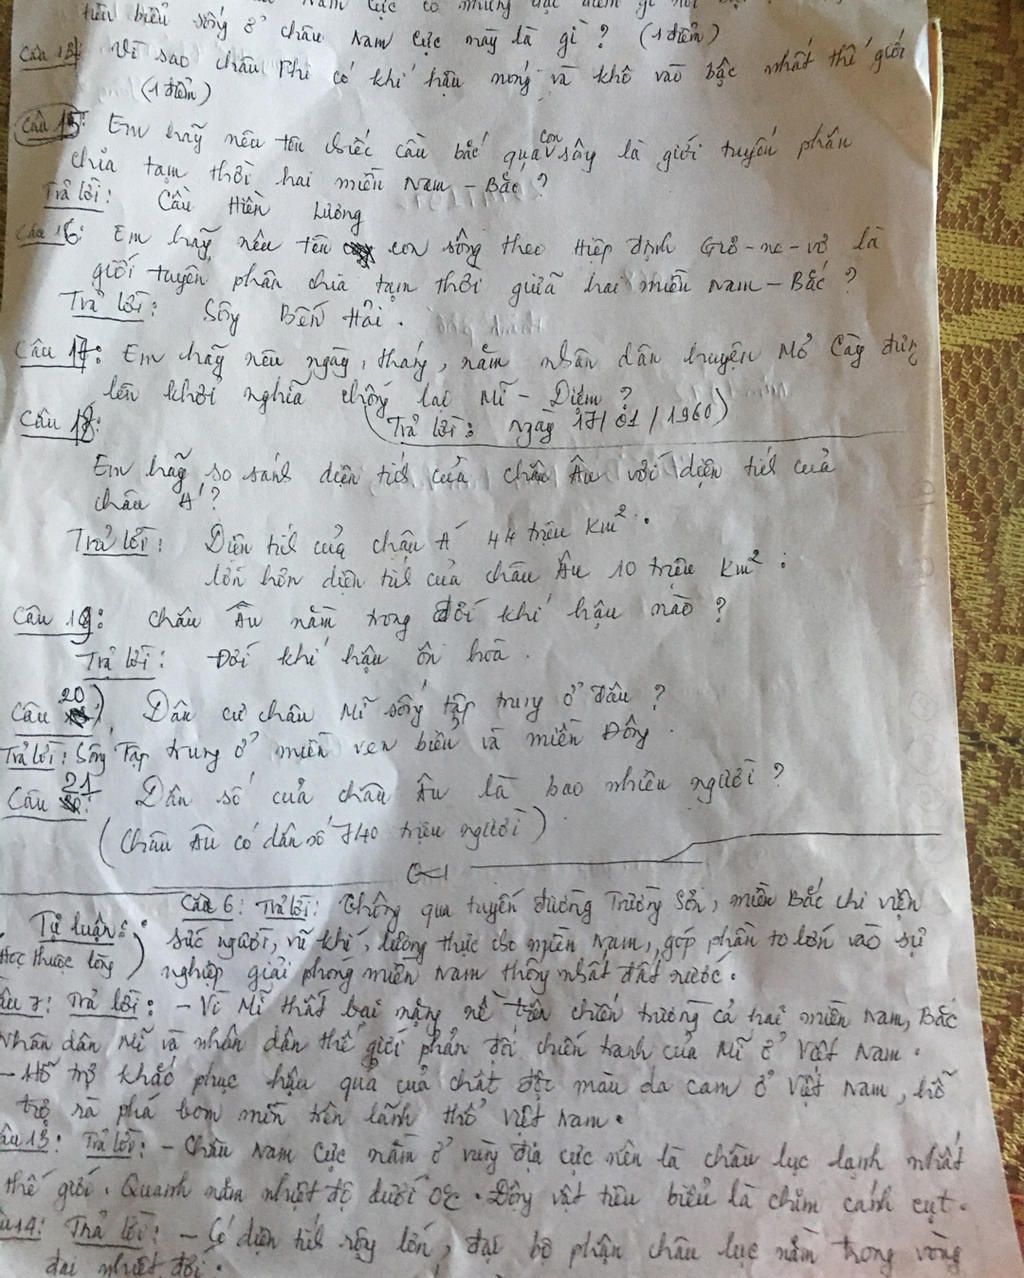 Nam Cực có những đặc điểm gì nổi
tiêu biểu sống ở châu Nam Cực này là gì? (1 điểm)
Câu 14: Vì sao châu Phi có khí hậu nóng và khô vào bậc nhất thế giới
(1 điểm)
Câu 15: Em hãy nêu tên chiếc cầu bắc qua con sông là giới tuyến phân
chia tạm thời hai miền Nam - Bắc?
Trả lời: Cầu Hiền Lương
Câu 16: Em hãy nêu tên con sông theo Hiệp định Giơ-ne-vơ là
giới tuyến phân chia tạm thời giữa hai miền Nam - Bắc?
Trả lời: Sông Bến Hải.
Câu 17: Em hãy nêu ngày, tháng, năm nhân dân huyện Mỏ Cày đứng
lên khởi nghĩa chống lại Mĩ - Diệm?
(Trả lời: ngày 17/01/1960)
Câu 18:
Em hãy so sánh diện tích của châu Âu với diện tích của
châu Á?
Trả lời: Diện tích của châu Á 44 triệu Km².
lớn hơn diện tích của châu Âu 10 triệu Km².
Câu 19: Châu Âu nằm trong đới khí hậu nào?
Trả lời: Đới khí hậu ôn hòa.
Câu 20) Dân cư châu Mĩ sống tập trung ở đâu?
Trả lời: Sống tập trung ở miền ven biển và miền Đông.
Câu 21: Dân số của châu Âu là bao nhiêu người?
(Châu Âu có dân số 740 triệu người)
Câu 6: Trả lời: Thông qua tuyến đường Trường Sơn, miền Bắc chi viện
Tự luận: sức người, vũ khí, lương thực cho miền Nam, góp phần to lớn vào sự
Học thuộc lòng) nghiệp giải phóng miền Nam thống nhất đất nước.
Câu 7: Trả lời: - Vì Mĩ thất bại nặng nề trên chiến trường cả hai miền Nam, Bắc
Nhân dân Mĩ và nhân dân thế giới phản đối chiến tranh của Mĩ ở Việt Nam.
- Hỗ trợ khắc phục hậu quả của chất độc màu da cam ở Việt Nam, hỗ
trợ rà phá bom mìn trên lãnh thổ Việt Nam.
Câu 13: Trả lời: - Châu Nam Cực nằm ở vùng địa cực nên là châu lục lạnh nhất
thế giới. Quanh năm nhiệt độ dưới 0°C. Động vật tiêu biểu là chim cánh cụt.
Câu 14: Trả lời: - Có diện tích rộng lớn, đại bộ phận châu lục nằm trong vòng
đai nhiệt đới.